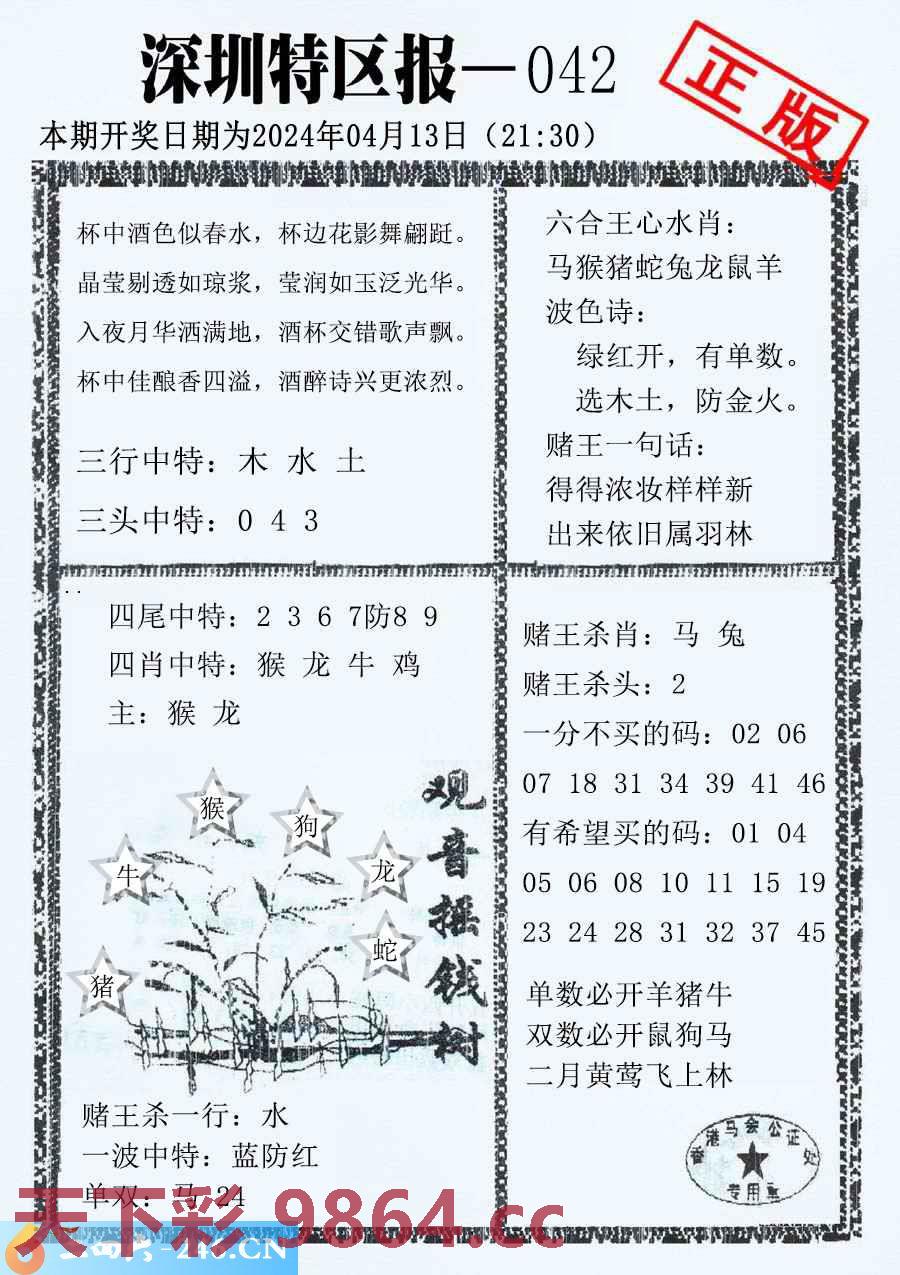 深圳特区报—042
正版
本期开奖日期为2024年04月13日（21:30）
杯中酒色似春水，杯边花影舞翩跹。
晶莹剔透如琼浆，莹润如玉泛光华。
入夜月华洒满地，酒杯交错歌声飘。
杯中佳酿香四溢，酒醉诗兴更浓烈。
三行中特：木 水 土
三头中特：0 4 3
六合王心水肖：
马猴猪蛇兔龙鼠羊
波色诗：
绿红开，有单数。
选木土，防金火。
赌王一句话：
得得浓妆样样新
出来依旧属羽林
四尾中特：2 3 6 7防8 9
四肖中特：猴 龙 牛 鸡
主：猴 龙
猴
狗
牛
龙
蛇
猪
观音摇钱树
赌王杀一行：水
一波中特：蓝防红
单双：马 24
赌王杀肖：马 兔
赌王杀头：2
一分不买的码：02 06
07 18 31 34 39 41 46
有希望买的码：01 04
05 06 08 10 11 15 19
23 24 28 31 32 37 45
单数必开羊猪牛
双数必开鼠狗马
二月黄莺飞上林
香港马会公证处
专用章
天下彩 9864.cc